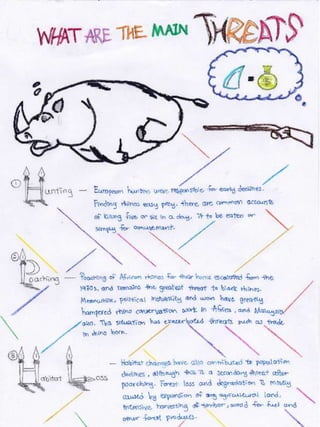 WHAT ARE THE MAIN THREATS
$
1 Hunting — European hunters were responsible for early declines.
Finding rhinos easy prey, there are common accounts
of killing five or six in a day, it to be eaten or
simply for amusement.
2 Poaching — Poaching of African rhinos for their horns escalated from the
1970s, and remains the greatest threat to black rhinos.
Meanwhile, political instability and wars have greatly
hampered rhino conservation work in Africa, and Malaysia
also. This situation has exacerbated threats such as trade
in rhino horn.
3 Habitat Loss — Habitat changes have also contributed to population
declines, although this is a secondary threat after
poarching. Forest loss and degradation is mostly
caused by expansion of agricultural land.
Intensive harvesting of timber, wood for fuel and
other forest produces.